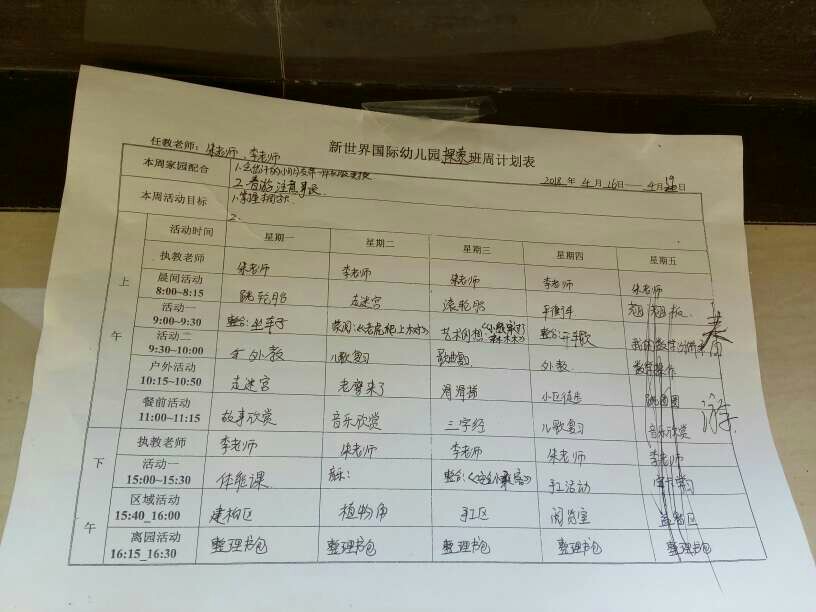 任教老师：朱老师、李老师
新世界国际幼儿园探索班周计划表
本周家园配合
2.春游注意事项
2018年4月16日——4月日
本周活动目标
1.
2.
活动时间 星期一 星期二 星期三 星期四 星期五
执教老师 朱老师 李老师 朱老师 李老师 朱老师
上午
晨间活动 8:00~8:15 跳轮胎 走迷宫 滚轮胎 平衡车 翘翘板
活动一 9:00~9:30 整合：坐车子 整合：开车歌
活动二 9:30~10:00 外教 儿歌复习 外教 数学操作
户外活动 10:15~10:50 走迷宫 老鹰来了 滑滑梯 小区徒步
餐前活动 11:00~11:15 故事欣赏 音乐欣赏 三字经 儿歌复习 音乐欣赏
春游
下午
执教老师 李老师 朱老师 李老师 朱老师 李老师
活动一 15:00~15:30 体能课 手工活动
区域活动 15:40_16:00 建构区 植物角 手工区 阅览室 益智区
离园活动 16:15_16:30 整理书包 整理书包 整理书包 整理书包 整理书包